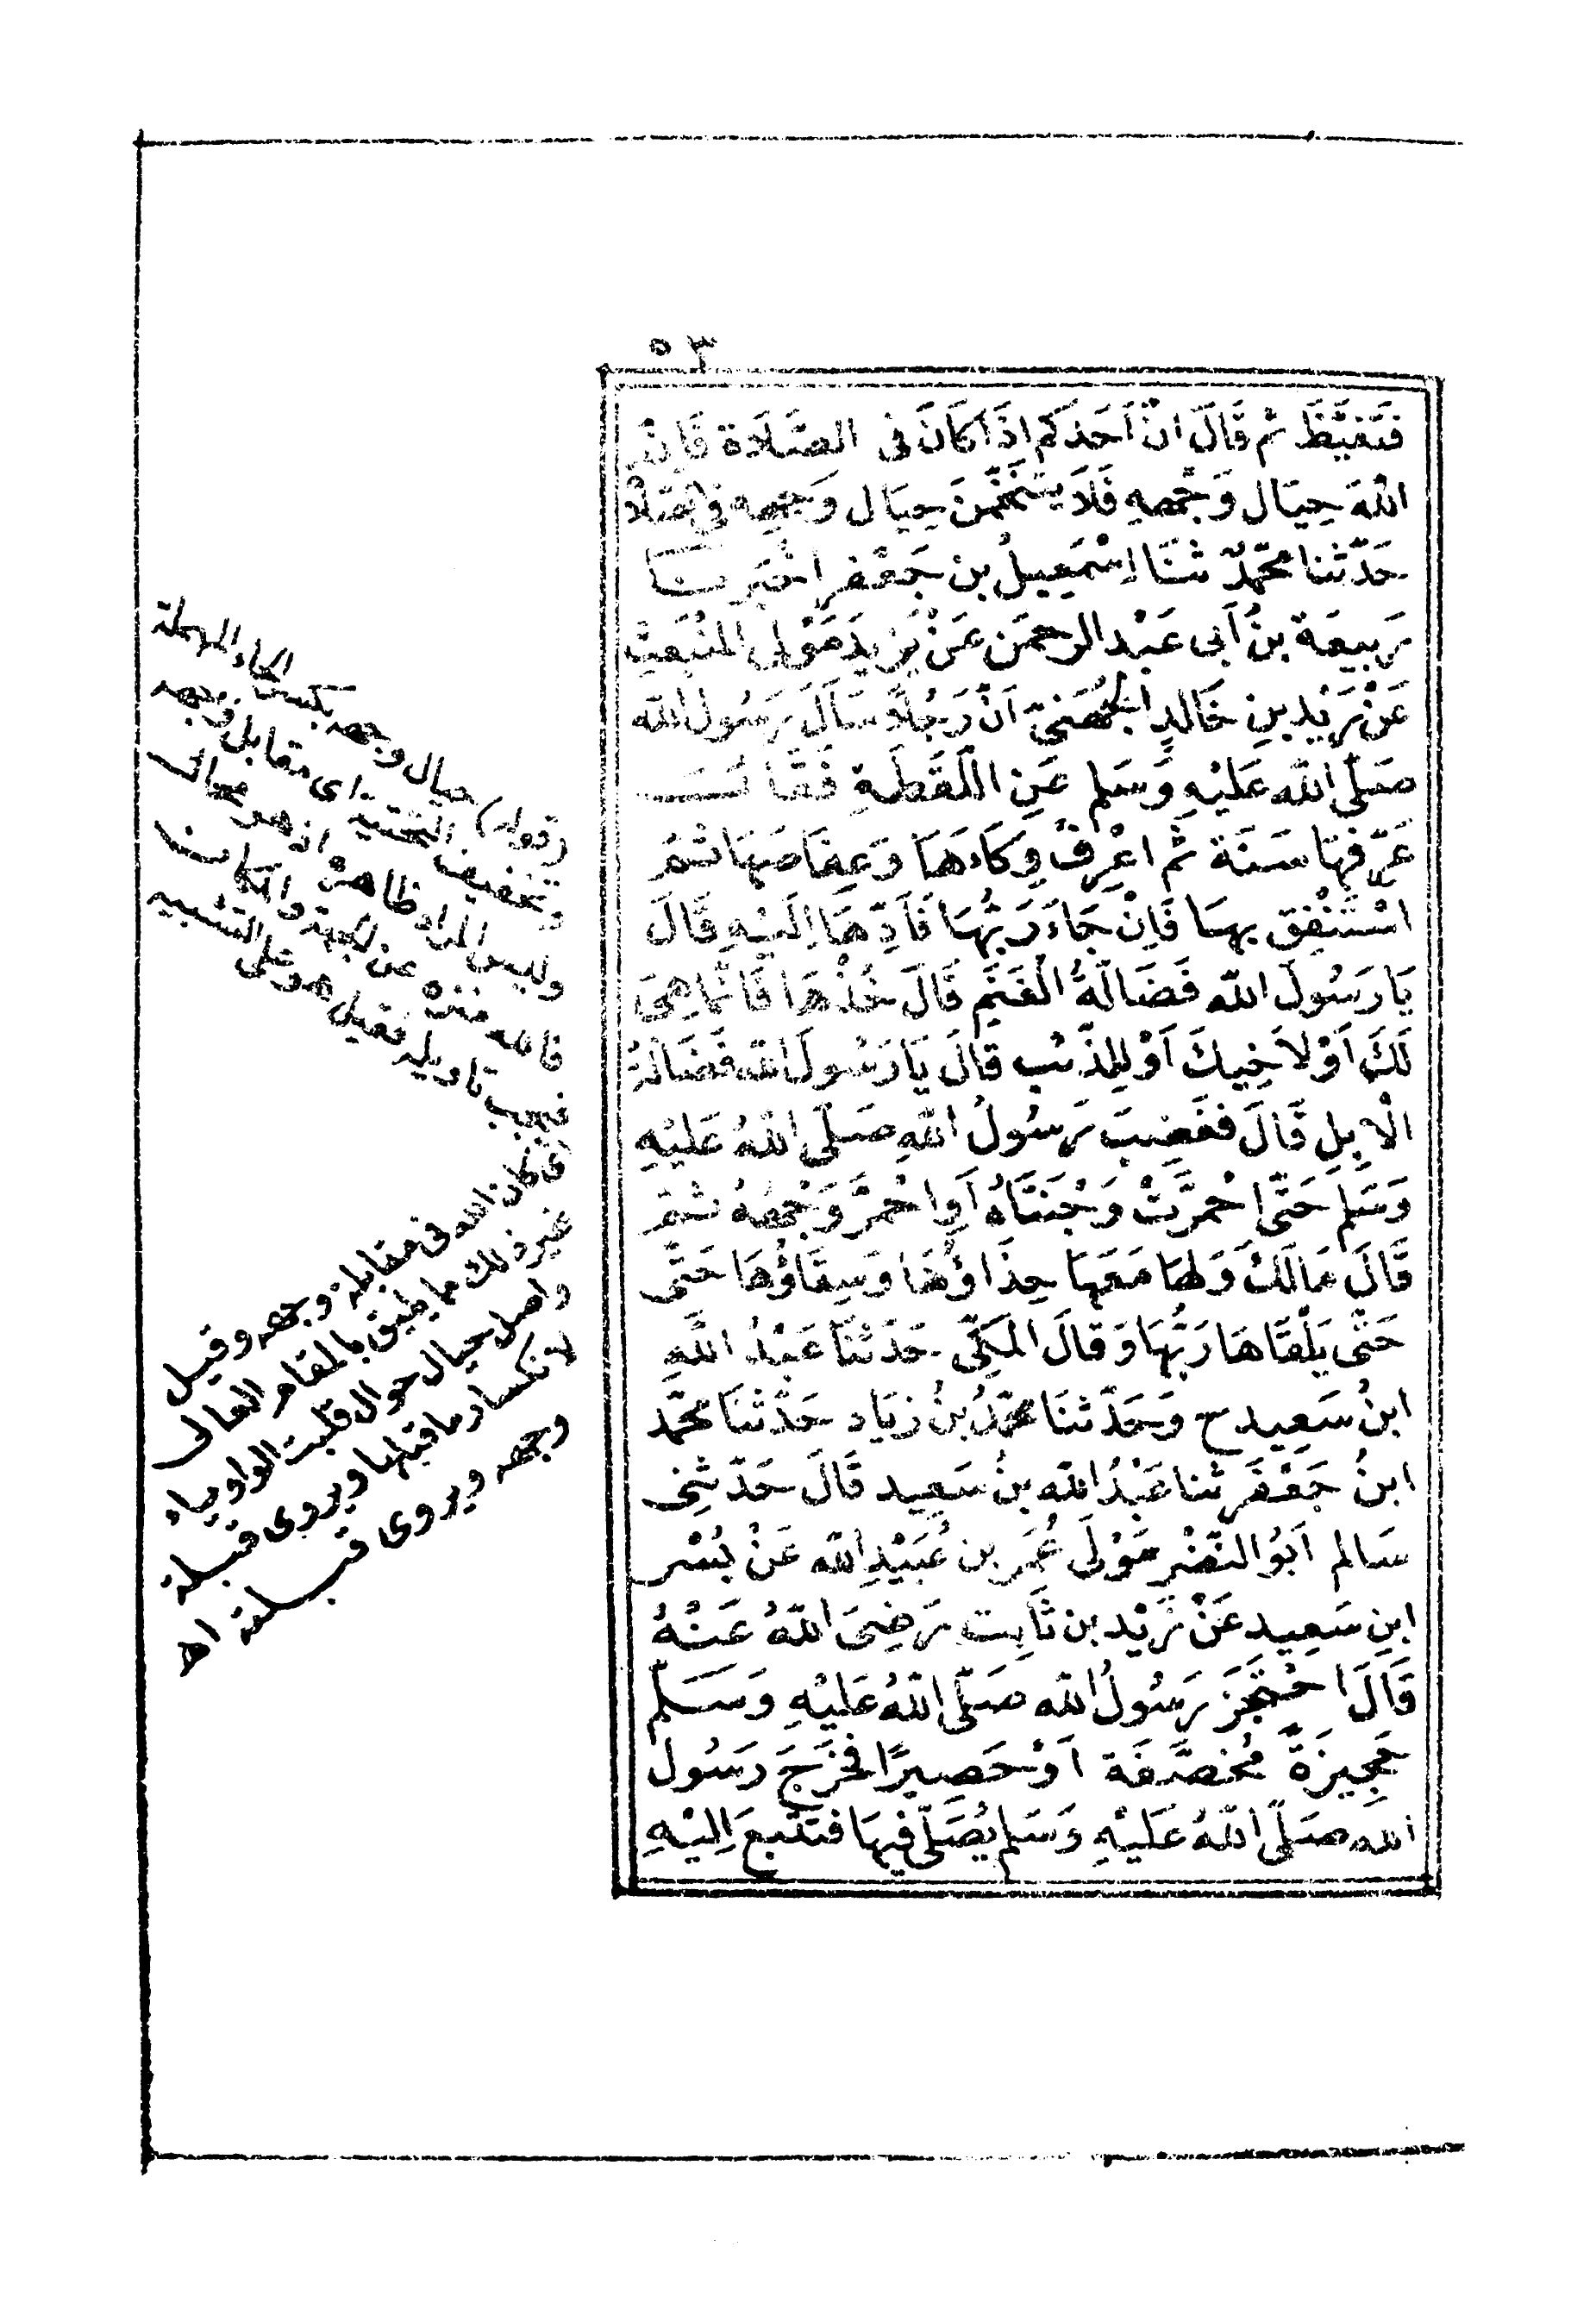 ٥٣
فَتَغَيَّظَ ثم قَالَ انّ اَحَدَكم اِذَا كَانَ فى الصَّلَاة فَاِنَّ
اللهَ حِيَال وَجْهِهِ فَلَا يَتَنَخَّمَنَّ حِيَال وَجهِهِ فى الصَّلَاة
حَدّثنا محمّدٌ ثنَا اِسْمعيلُ بن جَعْفر اخبَرنا
رَبيعَة بنُ اَبى عَبْد الرحمَن عَنْ يَزيدَ مَوْلى المُنْبَعِثِ
عَنْ زَيْد بنِ خَالدٍ الجُهَنىّ اَنّ رَجُلاً سَاَلَ رَسُول الله
صَلّى اللهُ عَلَيْهِ وَسَلم عَنِ اللّقَطَةِ فَقَال
عَرّفهَا سَنَة ثم اعْرِفْ وِكَاءَهَا وَعِفَاصَهَا ثمّ
اسْتَنْفِق بهَا فَاِنْ جَاءَ رَبُّهَا فَاَدِّهَا اِلَيْهِ قَالَ
يَا رَسُولَ الله فَضَالّةُ الْغَنَم قَالَ خُذْهَا فَاِنّمَا هِىَ
لَكَ اَوْ لِاَخِيكَ اَوْ لِلذّئب قالَ يَا رَسُولَ الله فَضَالّةُ
الْاِبِلِ قَالَ فغَضِبَ رَسُولُ اللهِ صَلّى اللهُ عَلَيْهِ
وَسَلم حَتّى احْمَرّتْ وَجْنَتَاهُ اَوِ احْمَرّ وَجْهُهُ ثمّ
قَالَ مَا لَكَ وَلهَا مَعَهَا حِذَاؤُهَا وَسِقَاؤُهَا حَتّى
حَتّى يَلْقَاهَا رَبُّهَا وَقالَ المَكّى حَدّثنَا عَبْدُ اللهِ
ابنُ سَعِيد ح وَحَدّثنَا محمّدُ بنُ زِيَاد حَدّثنَا محمّد
ابنُ جَعْفَر ثنا عَبْدُ الله بنُ سَعِيد قَالَ حَدّثنِى
سَالم اَبُو النّضْرِ مَوْلَى عُمَر بن عُبَيْدِ الله عَنْ بُسْر
ابنِ سَعِيد عَنْ زَيْد بن ثَابِت رَضِىَ اللهُ عَنْهُ
قَالَ احْتَجَرَ رَسُولُ الله صَلّى اللهُ عَلَيْهِ وَسَلّم
حُجَيرَةً مُخصّفَة اَوْ حَصِيرًا فخرَجَ رَسُولُ
الله صَلّى اللهُ عَلَيْهِ وَسَلم يُصَلّى فيهَا فتَتَبّعَ اِلَيْهِ
(قوله) حيال وجهه بكسر الحاء المهملة
وتخفيف التحتية اى مقابل وجهه
وليس المراد ظاهره اذ هو محال
فالله منزه عن الجهة والمكان
فيجب تاويله فقيل هو على التشبيه
اى كان الله فى مقابلة وجهه وقيل
غير ذلك مما يليق بالمقام العالى
واصل حيال حوال قلبت الواو ياء
لانكسار ما قبلها ويروى قبلة
وجهه ويروى قبلته اه